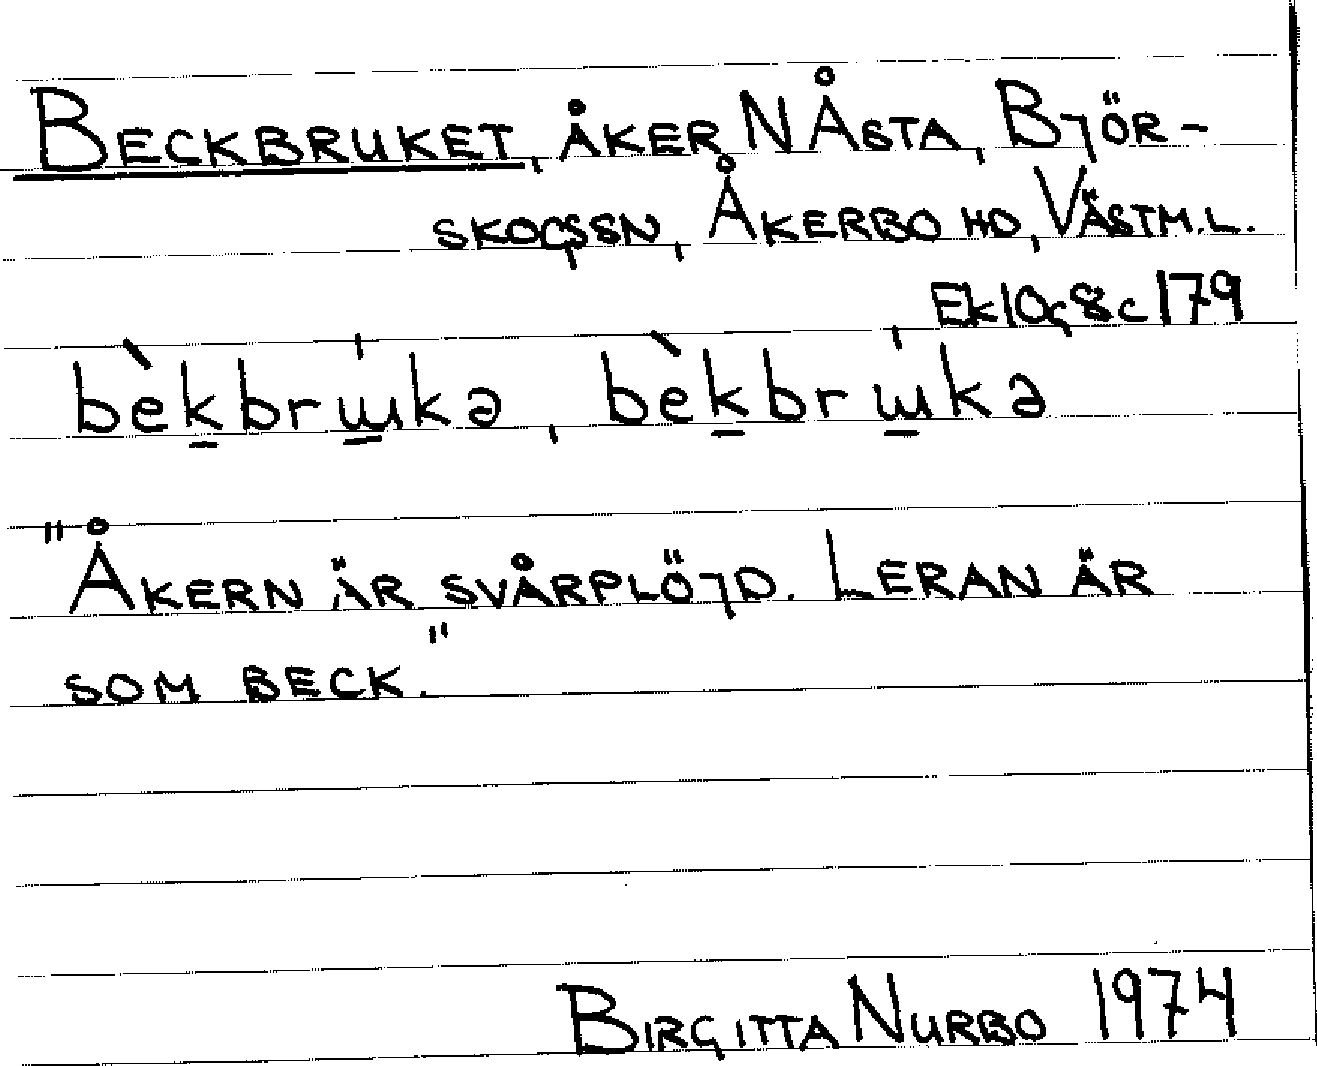 BECKBRUKET, ÅKER NÅSTA, BJÖR-
SKOGSSN, ÅKERBO HD, VÄSTM.L.
Ek10g8c179
bèk̲brɯ̲́kə, bèk̲brɯ̲́kə
"ÅKERN ÄR SVÅRPLÖJD. LERAN ÄR
SOM BECK."
BIRGITTA NURBO 1974